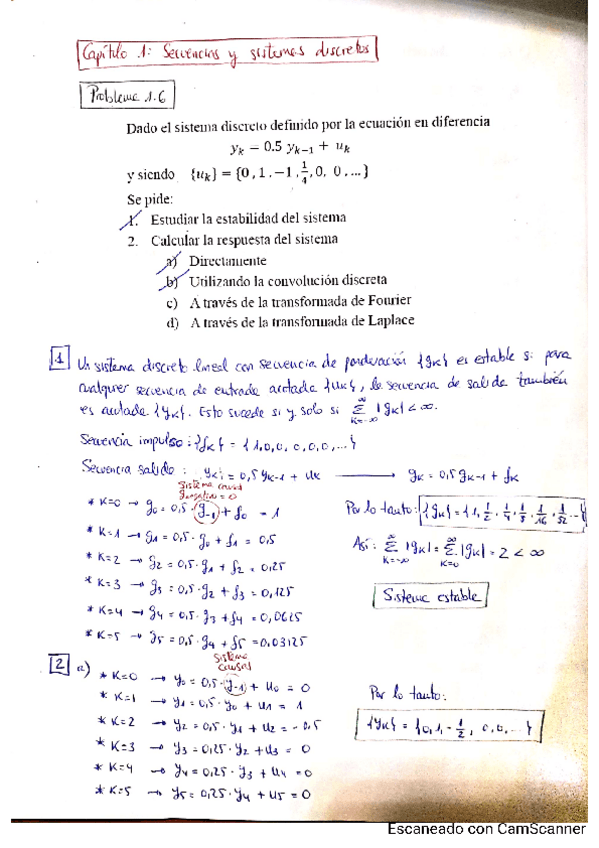 Capítulo 1: Secuencias y sistemas discretos
Problema 1.6
Dado el sistema discreto definido por la ecuación en diferencia
y_k = 0.5 y_{k-1} + u_k
y siendo {u_k} = {0, 1, −1, 1/4, 0, 0, ...}
Se pide:
1. Estudiar la estabilidad del sistema
2. Calcular la respuesta del sistema
a) Directamente
b) Utilizando la convolución discreta
c) A través de la transformada de Fourier
d) A través de la transformada de Laplace
1 Un sistema discreto lineal con secuencia de ponderación {gk} es estable si para
cualquier secuencia de entrada acotada {uk}, la secuencia de salida también
es acotada {yk}. Esto sucede si y solo si ∞ Σ K=-∞ |gk| < ∞.
Secuencia impulso: {fk} = {1,0,0,0,0,0,...}
Secuencia salida: yk = 0,5 yk-1 + uk → gk = 0,5 gk-1 + fk
sistema causal
gnegativo = 0
* K=0 → g0 = 0,5·g-1 + f0 = 1
Por lo tanto: {gk} = {1, 1/2, 1/4, 1/8, 1/16, 1/32 ...}
* K=1 → g1 = 0,5·g0 + f1 = 0,5
Así: ∞ Σ K=-∞ |gk| = ∞ Σ K=0 |gk| = 2 < ∞
* K=2 → g2 = 0,5·g1 + f2 = 0,25
* K=3 → g3 = 0,5·g2 + f3 = 0,125
Sistema estable
* K=4 → g4 = 0,5·g3 + f4 = 0,0625
* K=5 → g5 = 0,5·g4 + f5 = 0,03125
sistema
causal
2 a) * K=0 → y0 = 0,5·y-1 + u0 = 0
Por lo tanto:
* K=1 → y1 = 0,5·y0 + u1 = 1
* K=2 → y2 = 0,5·y1 + u2 = -0,5
{yk} = {0, 1, -1/2, 0, 0, ...}
* K=3 → y3 = 0,25·y2 + u3 = 0
* K=4 → y4 = 0,25·y3 + u4 = 0
* K=5 → y5 = 0,25·y4 + u5 = 0
Escaneado con CamScanner